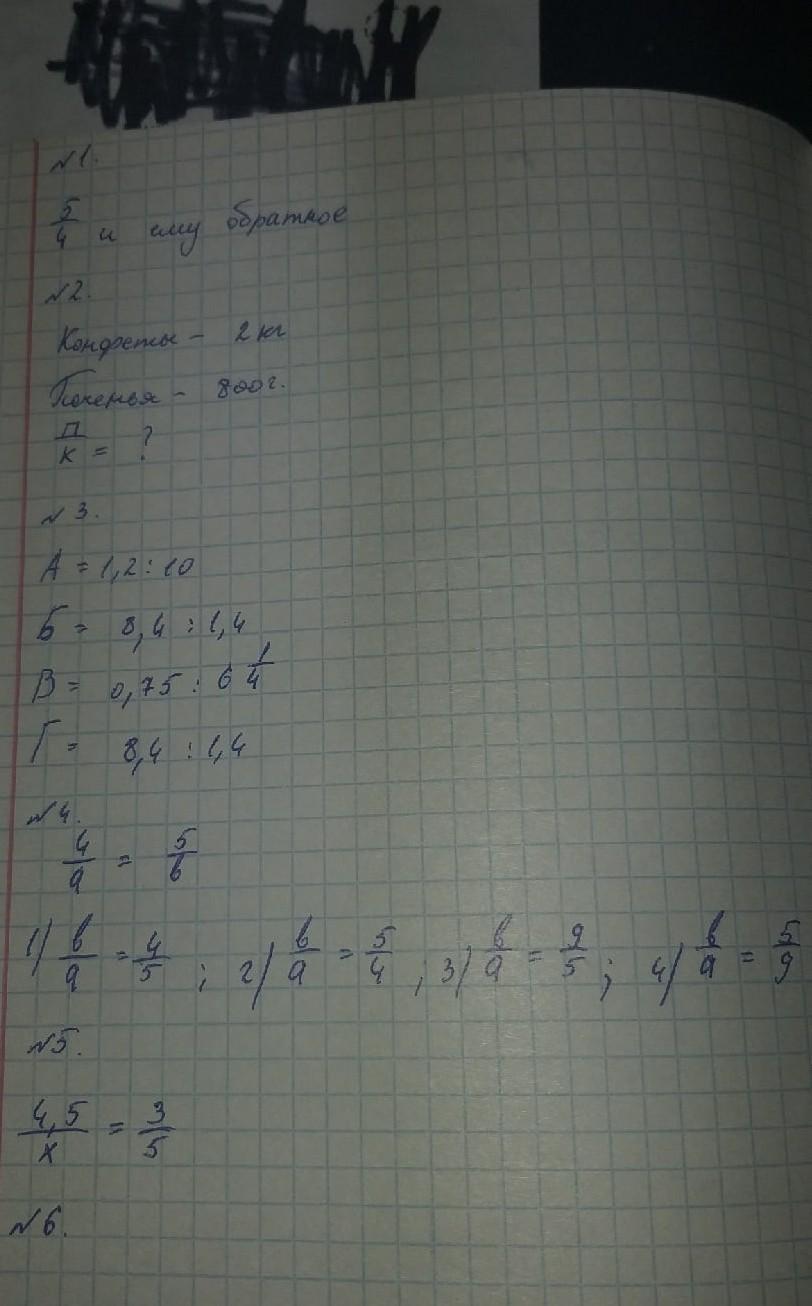 №1.
5/4 и ему обратное
№2.
Конфеты - 2 кг
Печенья - 800 г.
П/К = ?
№3.
А = 1,2 : 10
Б = 8,4 : 1,4
В = 0,75 : 6 1/4
Г = 8,4 : 1,4
№4.
4/a = 5/b
1) b/a = 4/5 ; 2) b/a = 5/4 ; 3) b/a = 9/5 ; 4) b/a = 5/9
№5.
4,5/x = 3/5
№6.